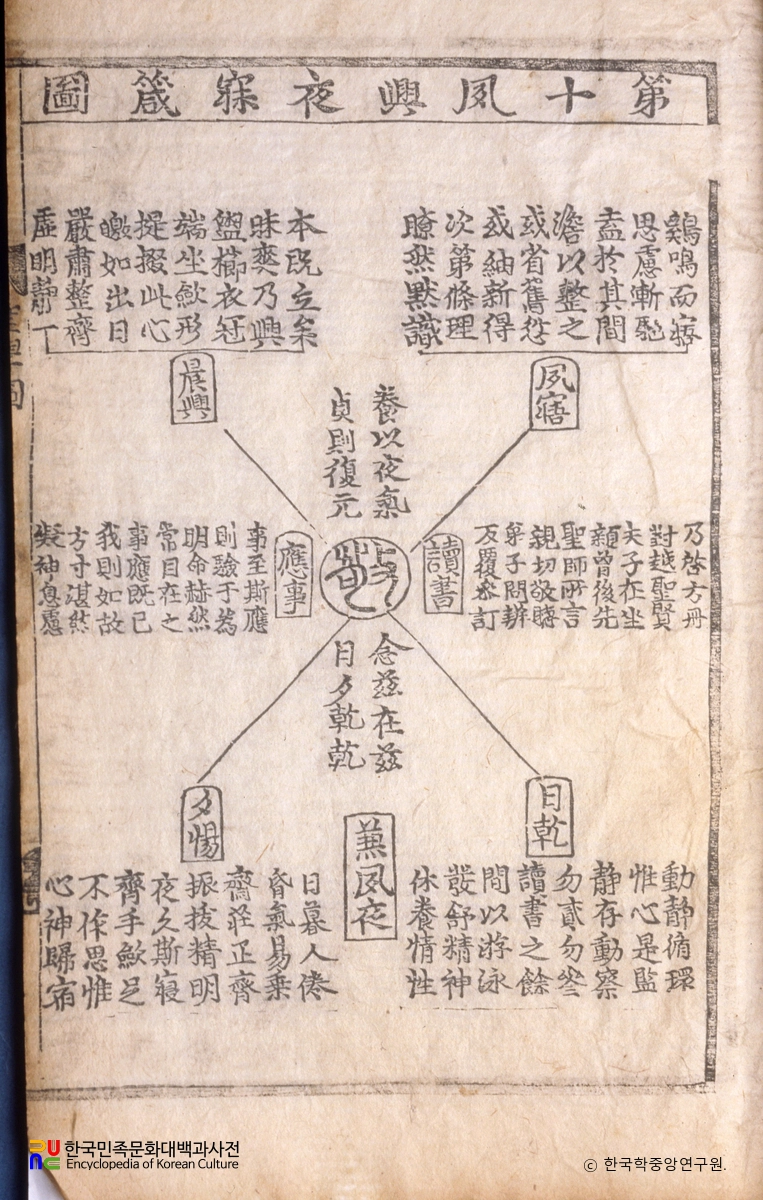 第十夙興夜寐箴圖
鷄鳴而寤
思慮漸馳
盍於其間
澹以整之
或省舊愆
或紬新得
次第條理
瞭然默識
夙寤
本旣立矣
昧爽乃興
盥櫛衣冠
端坐斂形
提掇此心
皦如出日
嚴肅整齊
虛明靜一
晨興
養以夜氣
貞則復元
乃啓方冊
對越聖賢
夫子在坐
顔曾後先
聖師所言
親切敬聽
弟子問辨
反覆參訂
讀書
敬
應事
事至斯應
則驗于爲
明命赫然
常目在之
事應旣已
我則如故
方寸湛然
凝神息慮
念茲在茲
日夕乾乾
日乾
動靜循環
惟心是監
靜存動察
勿貳勿參
讀書之餘
間以游泳
發舒精神
休養情性
兼夙夜
夕惕
日暮人倦
昏氣易乘
齋莊正齊
振拔精明
夜久斯寢
齊手斂足
不作思惟
心神歸宿
한국민족문화대백과사전
Encyclopedia of Korean Culture
ⓒ 한국학중앙연구원.